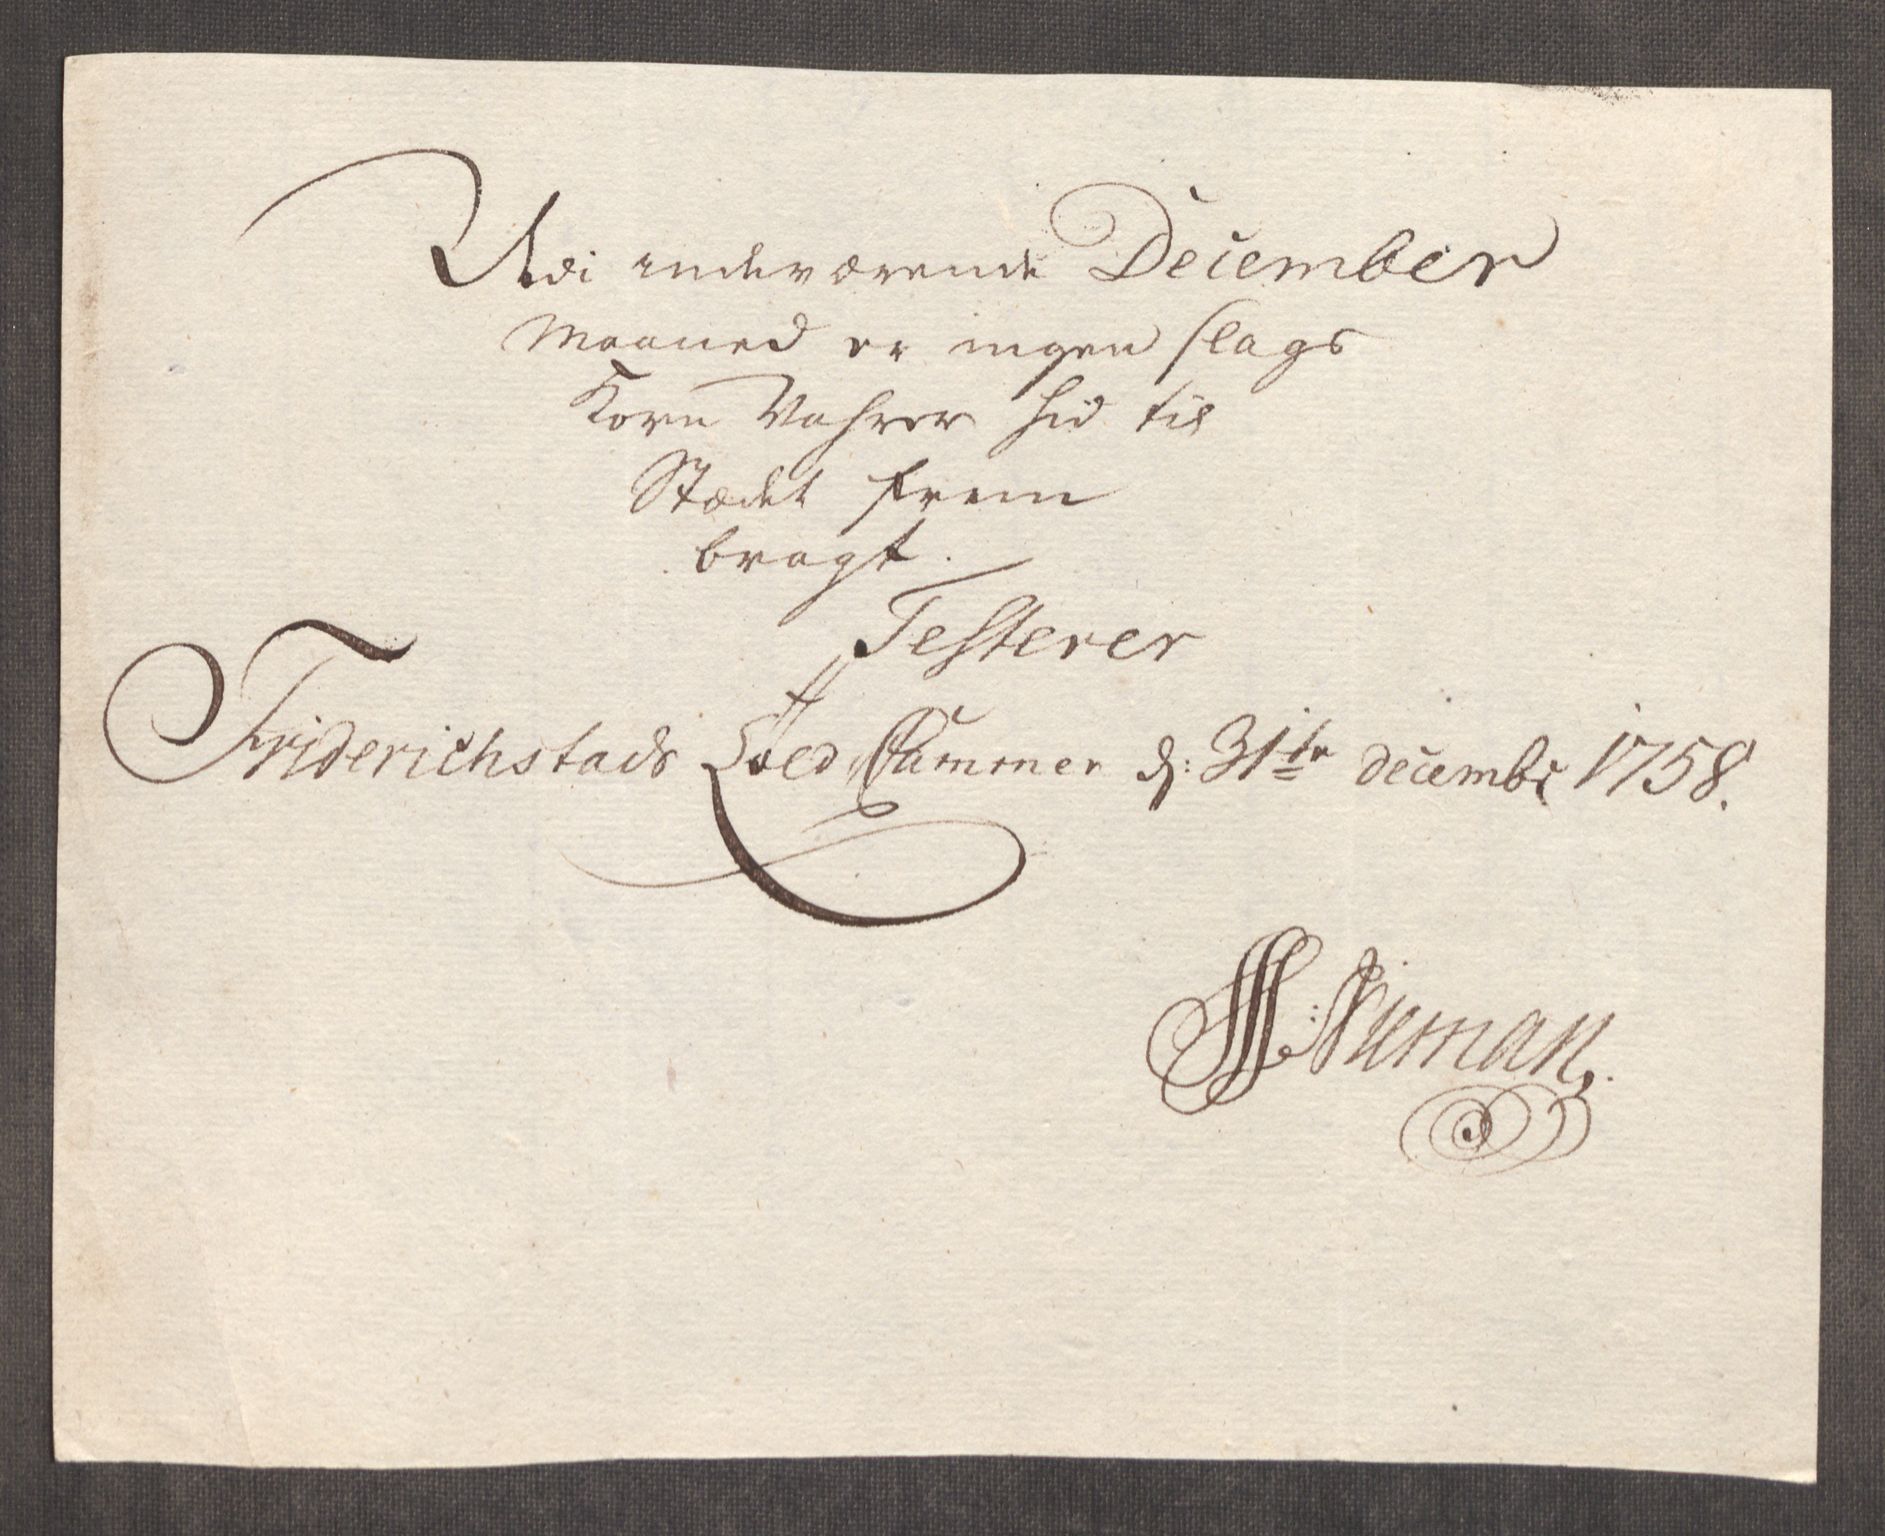 Udi indeværende December
Maaned er ingen slags
Korn Vahrer hid til
Stædet frem
bragt.
Testerer
Friderichstads Told Cammer d: 31te decembr 1758.
Nieman